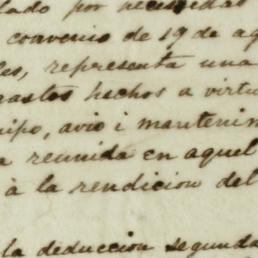 lado por necesidas
convenio de 19 de ag
les, representa una
gastos hechos a virtu
uipo, avio i mantenim
a reunida en aquel
à la rendicion del
la deduccion segunda